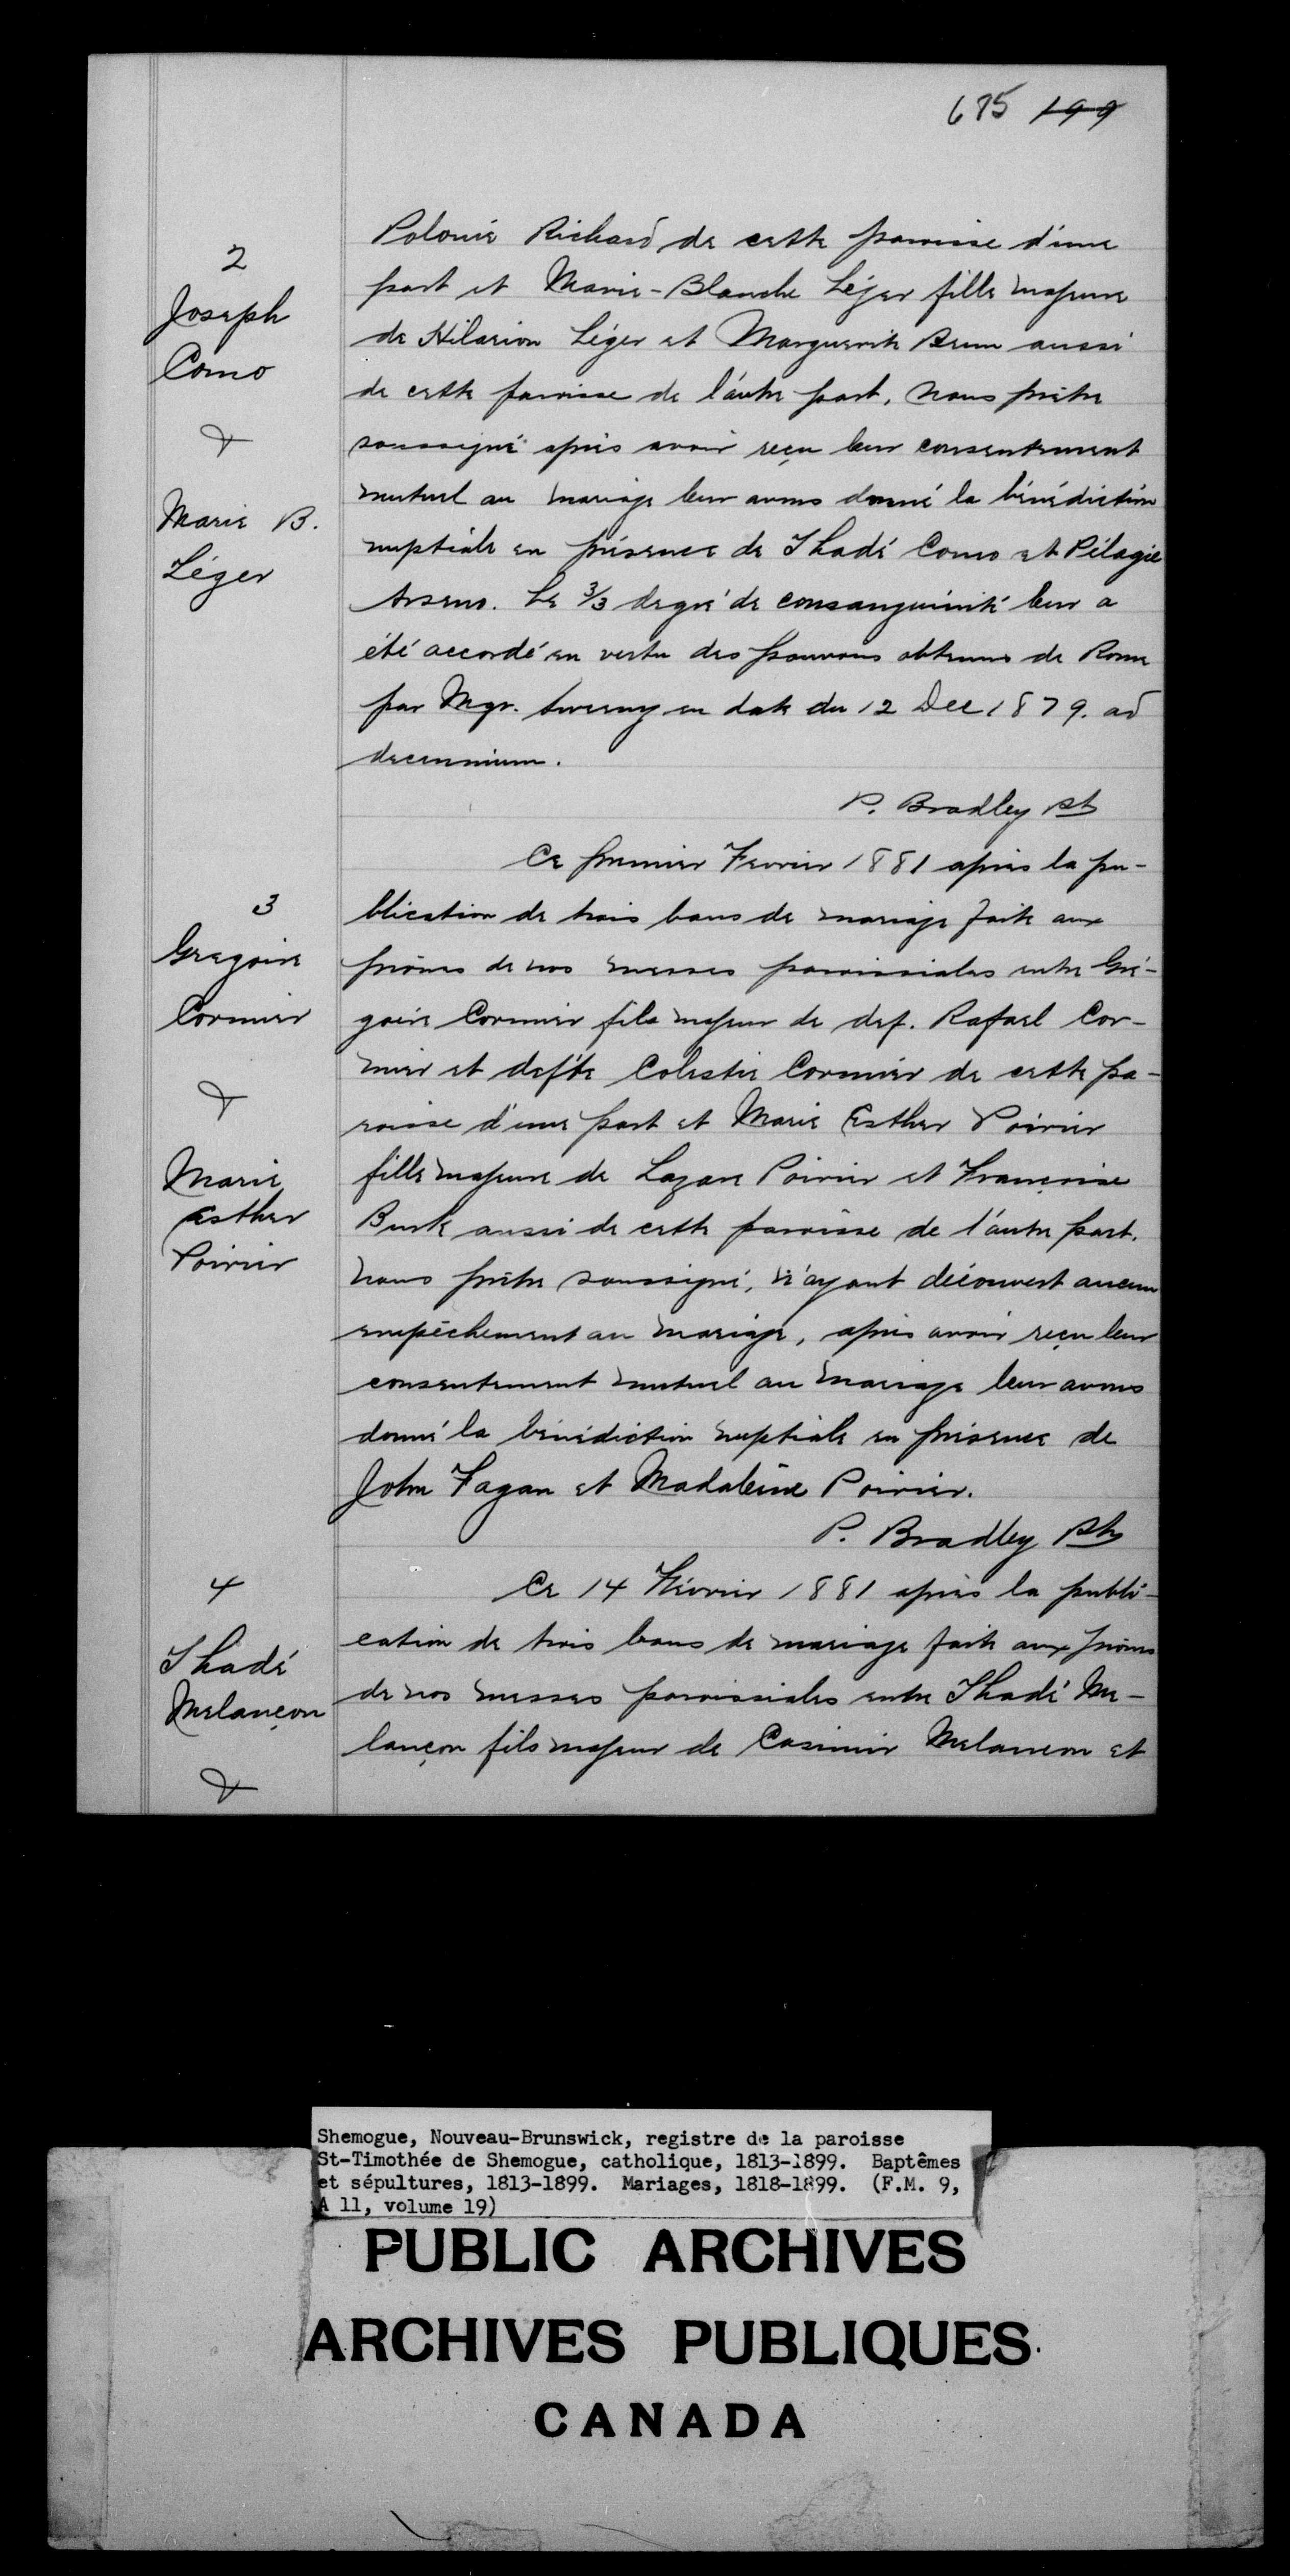 685 199
2
Joseph
Como
&
Marie B.
Léger
Polonie Richard de cette paroisse d'une
part et Marie-Blanche Léger fille majeure
de Hilarion Léger et Marguerite Brun aussi
de cette paroisse de l'autre part, nous prêtre
soussigné après avoir reçu leur consentement
mutuel au mariage leur avons donné la bénédiction
nuptiale en présence de Thadé Como et Pélagie
Arseno. Le 3/3 degré de consanguinité leur a
été accordé en vertu des pouvoirs obtenus de Rome
par Mgr. Sweeny en date du 12 Dec 1879. ad
decennium.
P. Bradley Pt
3
Gregoire
Cormier
&
Marie
Esther
Poirier
Ce premier Fevrier 1881 après la pu-
blication de trois bans de mariage faite aux
prônes de nos messes paroissiales entre Gré-
goire Cormier fils majeur de def. Rafael Cor-
mier et defte Colestie Cormier de cette pa-
roisse d'une part et Marie Esther Poirier
fille majeure de Lazare Poirier et Françoise
Burk aussi de cette paroisse de l'autre part.
nous prêtre soussigné, n'ayant découvert aucun
empêchement au mariage, après avoir reçu leur
consentement mutuel au mariage leur avons
donné la bénédiction nuptiale en présence de
John Fagan et Madaleine Poirier.
P. Bradley Pt
4
Thadé
Melançon
&
Ce 14 Février 1881 après la publi-
cation de trois bans de mariage faite aux prônes
de nos messes paroissiales entre Thadé Me-
lançon fils majeur de Casimir Melancon et
Shemogue, Nouveau-Brunswick, registre de la paroisse
St-Timothée de Shemogue, catholique, 1813-1899. Baptêmes
et sépultures, 1813-1899. Mariages, 1818-1899. (F.M. 9,
A 11, volume 19)
PUBLIC ARCHIVES
ARCHIVES PUBLIQUES
CANADA